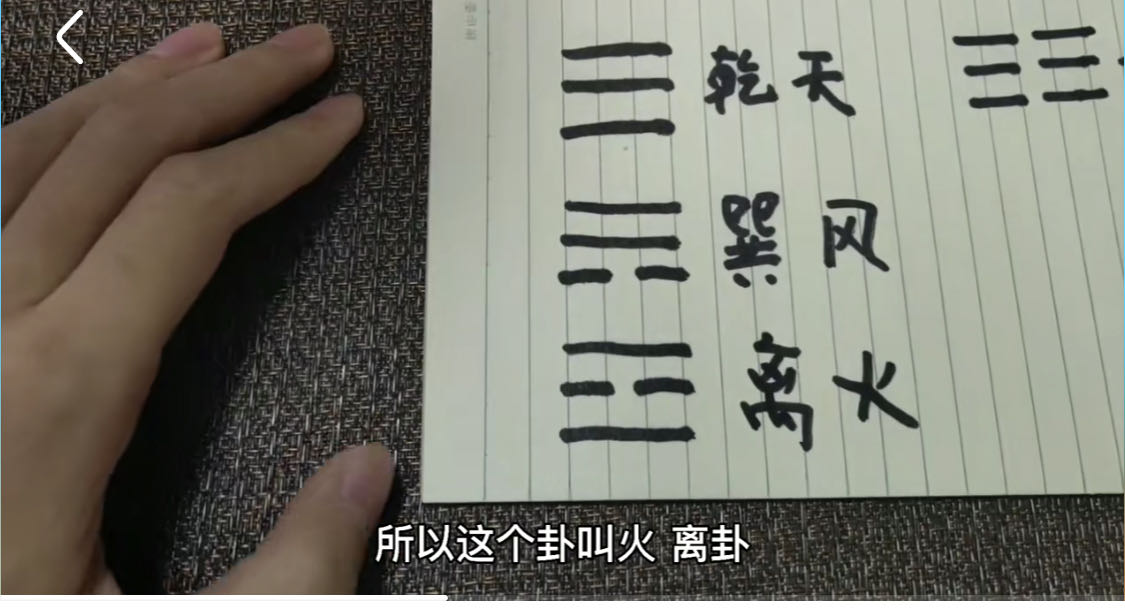 乾天
巽风
离火
所以这个卦叫火 离卦